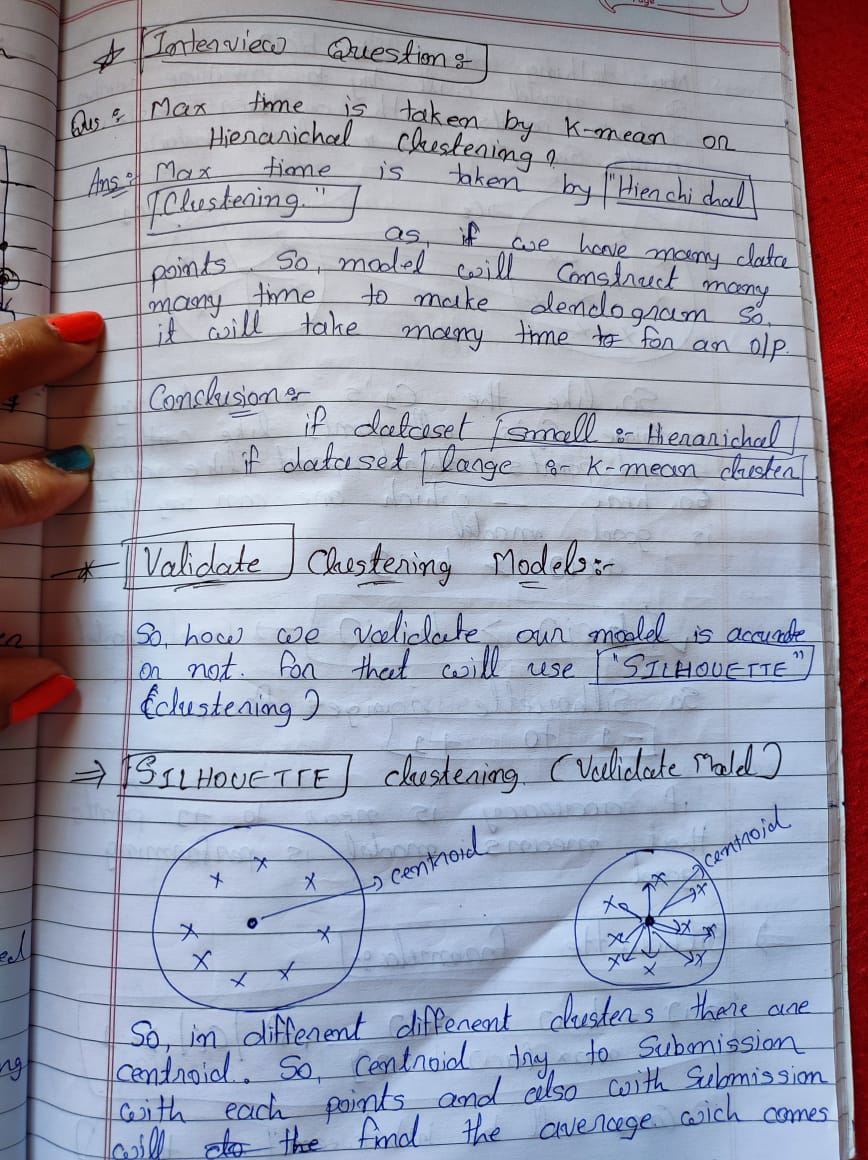 Interview Question :-
Ques :- Max time is taken by K-mean or
Hierarichal Clustering?
Ans :- Max time is taken by "Hierchichal
Clustering."
as, if we have many data
points. So, model will Construct many
many time to make dendogram so,
it will take many time to for an o/p.
Conclusion :-
if dataset small :- Hierarichal
if dataset large :- K-mean cluster
* Validate Clustering Models :-
So, how we validate our model is accurate
or not. For that will use "SILHOUETTE"
(clustering)
⇒ SILHOUETTE clustering. (Validate Model)
centroid
centroid
So, in different different clusters there are
centroid. So, centroid try to Submission
with each points and also with Submission
will do the find the average. wich comes